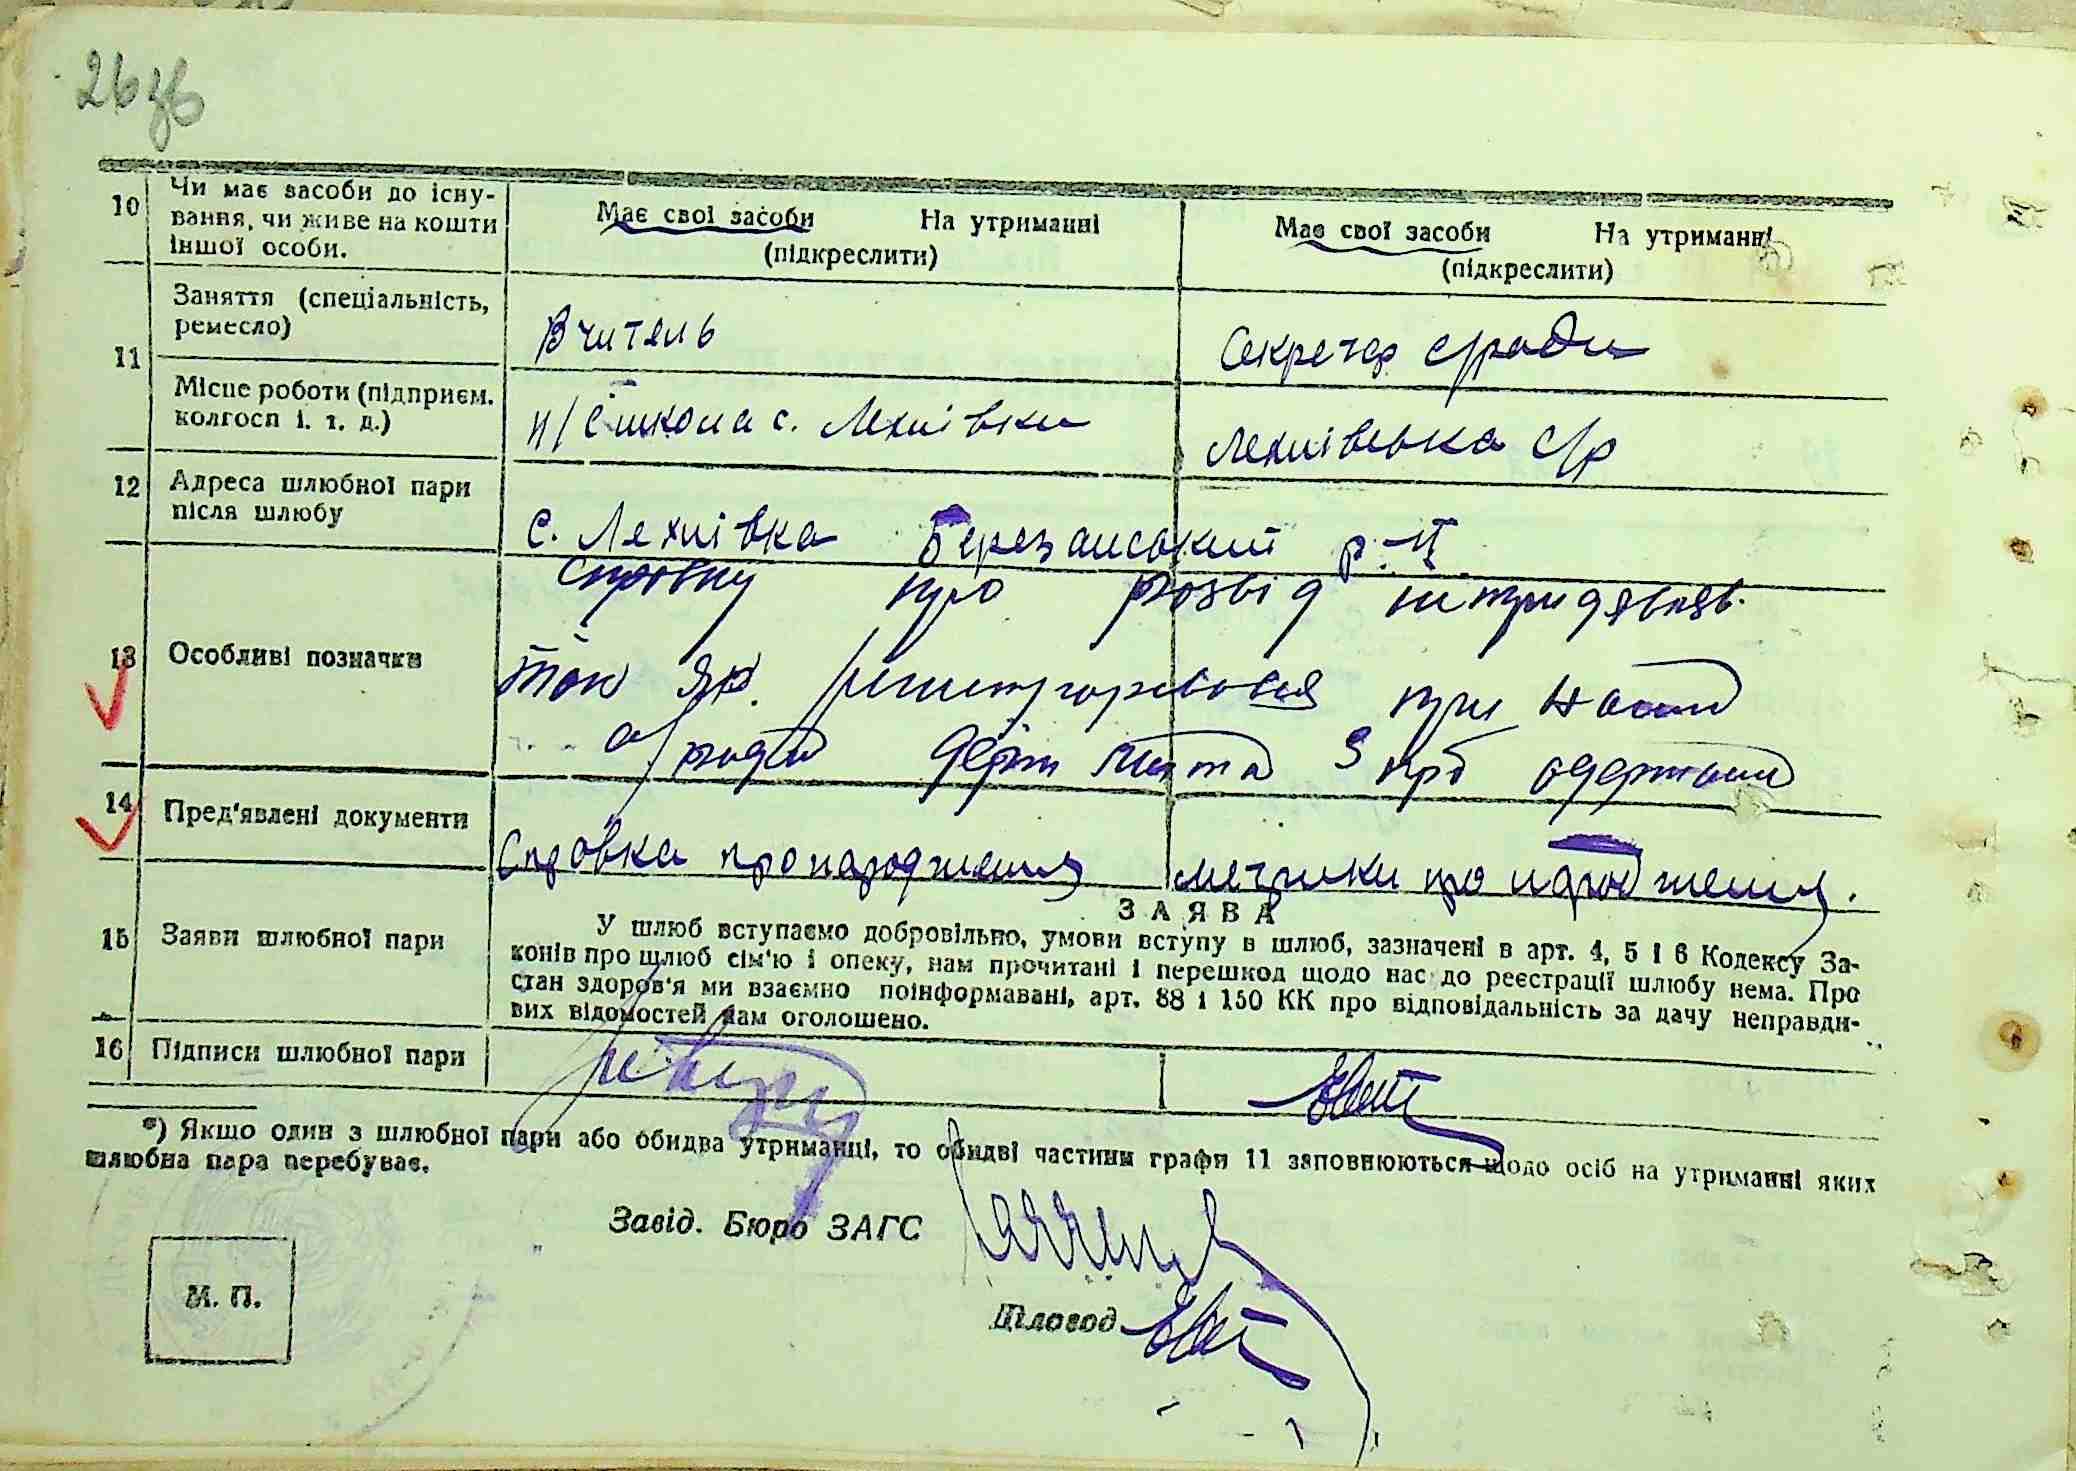 26 зв
10 Чи має засоби до існу-
вання, чи живе на кошти
іншої особи.
Має свої засоби На утриманні
(підкреслити)
Має свої засоби На утриманні
(підкреслити)
11 Заняття (спеціальність,
ремесло)
Вчитель
Секретар с/ради
Місце роботи (підприєм.
колгосп і. т. д.)
н/с школа с. Лехнівки
Лехнівська с/р
12 Адреса шлюбної пари
після шлюбу
с. Лехнівка Березанський р-н
13 Особливі позначки
справку про розвід не придявляв.
так як регистрировався при нашій
с/раді держ мита 3 крб одержано
14 Пред'явлені документи
Справка про народження
метрики про народження.
15 Заяви шлюбної пари
ЗАЯВА
У шлюб вступаємо добровільно, умови вступу в шлюб, зазначені в арт. 4, 5 і 6 Кодексу За-
конів про шлюб сім'ю і опеку, нам прочитані і перешкод щодо нас до реєстрації шлюбу нема. Про
стан здоров'я ми взаємно поінформавані, арт. 88 і 150 КК про відповідальність за дачу неправди-
вих відомостей нам оголошено.
16 Підписи шлюбної пари
*) Якщо один з шлюбної пари або обидва утриманці, то обидві частини графи 11 заповнюються щодо осіб на утриманні яких
шлюбна пара перебуває.
Завід. Бюро ЗАГС
М. П.
Діловод